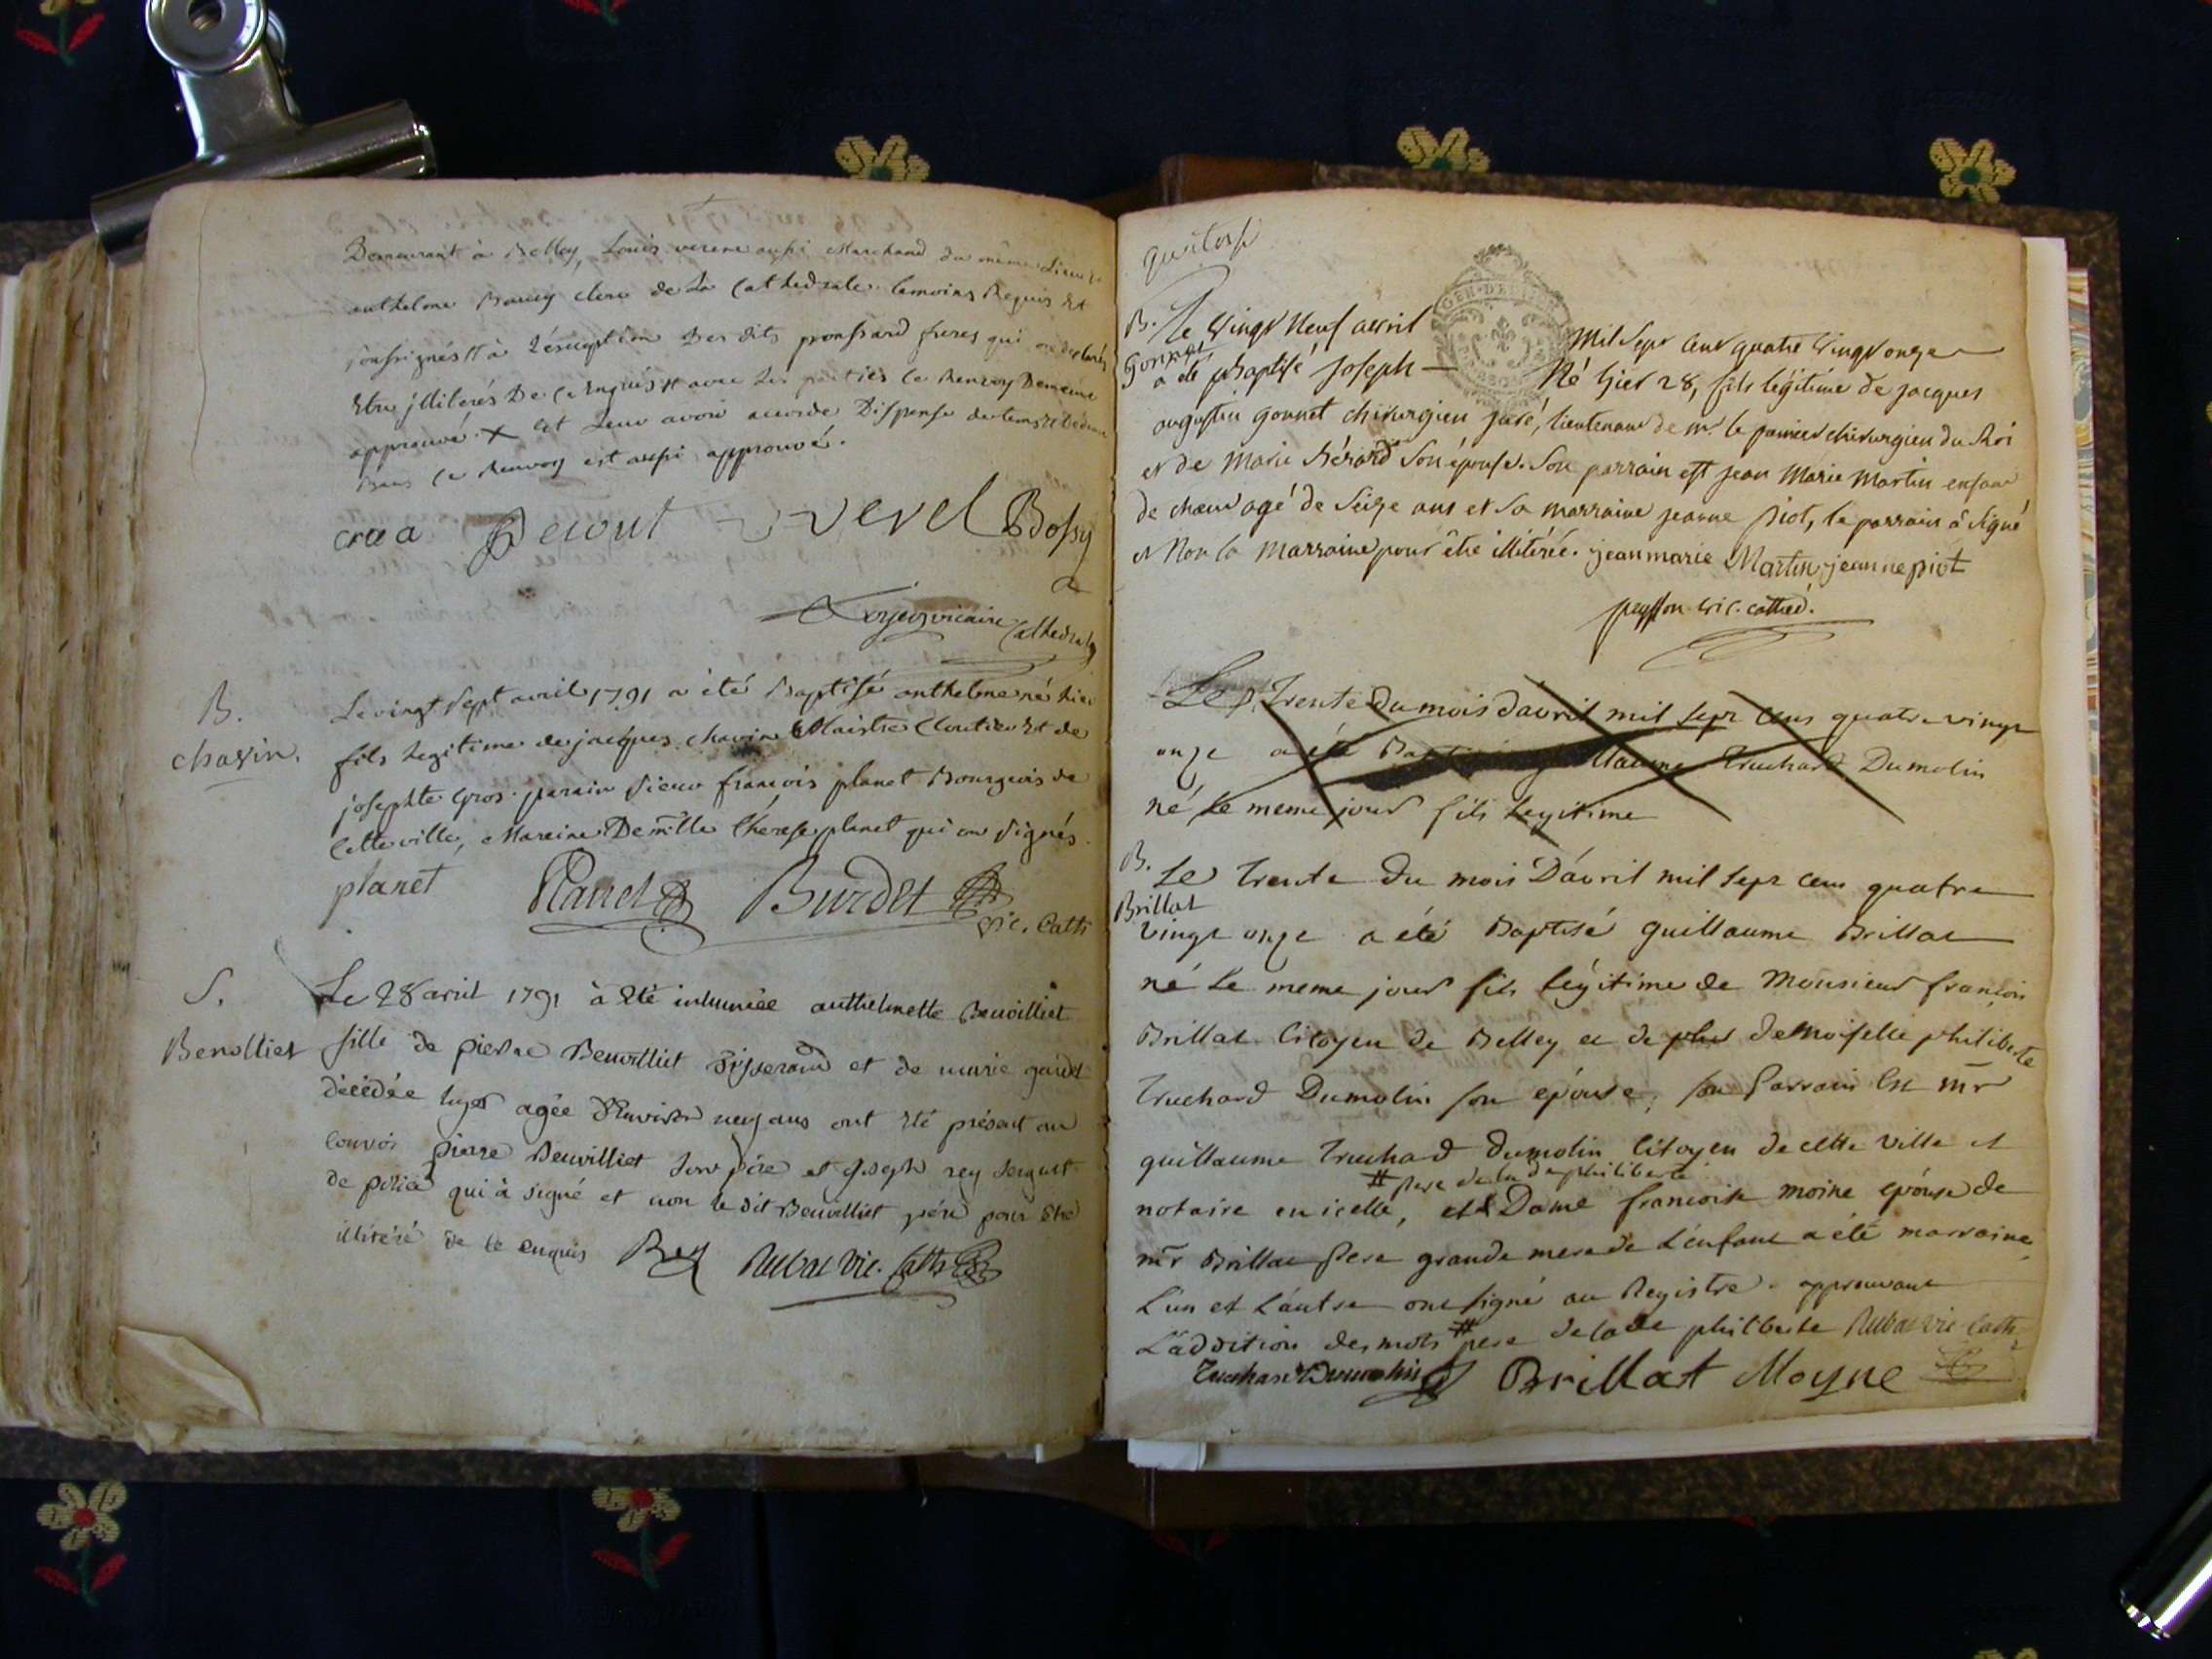 Demeurant à Belley, Louis verene aussi Marchand du même Lieu
anthelme Baucy clerc de La Cathedrale temoins Requis Et
soussignés à L'exception Des dits proussard freres qui ont declarés
Etre jlliterés De ce Enquis avec les parties le Renvoy Demeure
approuvé. X et Leur avoir accordé Dispense du tems
Le Renvoy est aussi approuvé.
Decrout verel Bossy
vicaire Cathedrale
B.
chavin.
Le vingt Sept avril 1791 a été Baptisé anthelme né hier
fils Legitime de jacques chavin Maistre Cloutier Et de
josephte Gros. parain Sieur francois planet Bourgeois de
Cette ville, Maraine Demlle thérese planet qui ont signés.
planet Planet Burdet
vic. Cath
S.
Benvilliet
Le 28 avril 1791 à Eté inhumée anthelmette Benvilliet
fille de pierre Benvilliet Tisserand et de marie gardet
décédée hyer agée d'Environ neuf ans ont Eté présent au
convoi pierre Benvilliet son pére et Joseph rey sergent
de police qui à signé et non le dit Benvilliet pére pour être
illitéré de ce enquis Rey Rubat vic. Cath
quatorse
B.
Gonnet
Le Vingt Neuf avril mil Sept Cent quatre Vingt onze
a été Baptisé Joseph — Né hier 28, fils légitime de jacques
augustin gonnet chirurgien juré, lieutenant de mr. le premier chirurgien du Roi
et de Marie Hérard Son épouse. Son parrain est jean Marie Martin enfant
de choeur agé de Seize ans et Sa marraine jeanne piot, le parrain à Signé
et Non la Marraine pour être illitérée. jean marie Martin jeanne piot
peysson vic. cathed.
Le Trente du mois d'avril mil sept cens quatre vingt
onze a été Guillaume Truchard Dumolin
né le meme jour fils Legitime
B.
Brillat
Le trente du mois D'avril mil sept cens quatre
vingt onze a été Baptisé guillaume Brillat
né Le meme jour fils légitime de Monsieur françois
Brillat Citoyen de Belley et de plus demoiselle philiberte
Truchard Dumolin son epouse, son Parrain Est mr
guillaume Truchard dumolin Citoyen de cette Ville et
# pere de lade philiberte
notaire en icelle, et Dame francoise moine epouse de
mr Brillat Pere grande mere de L'enfant a été marraine,
L'un et L'autre ont signé au Registre. approuvant
L'addition des mots # pere de lade philiberte Rubat vic cath
Truchard Dumolin Brillat Moyne